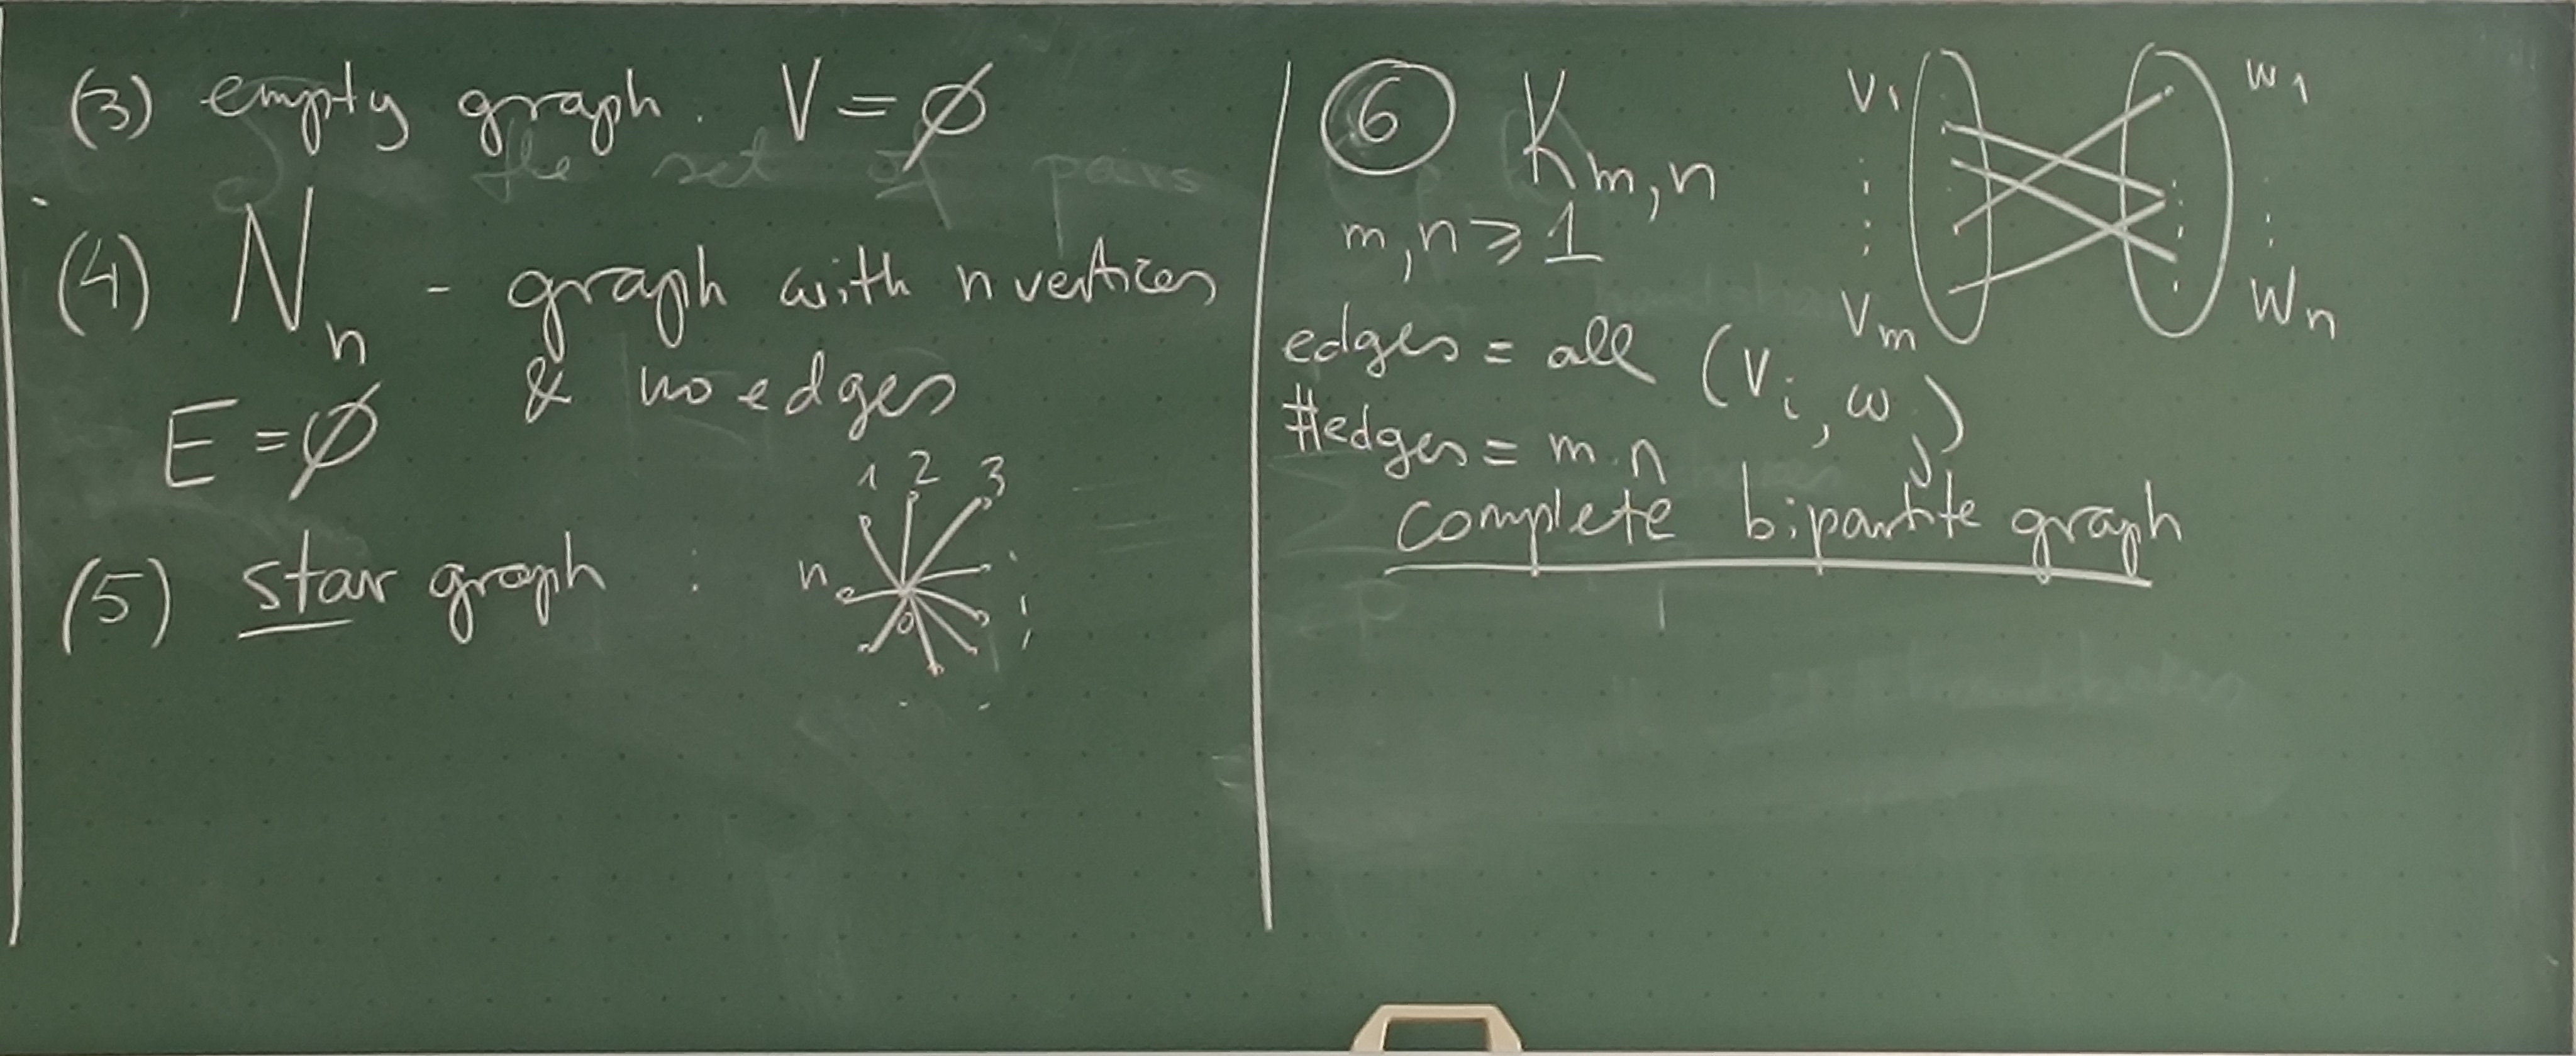 (3) empty graph. V = ∅
(4) N_n - graph with n vertices
& no edges
E = ∅
(5) star graph :
1 2 3
n
0
⑥ K_{m,n}
m,n ⩾ 1
v_1 w_1
⋮ ⋮
v_m w_n
edges = all (v_i, w_j)
#edges = m·n
complete bipartite graph